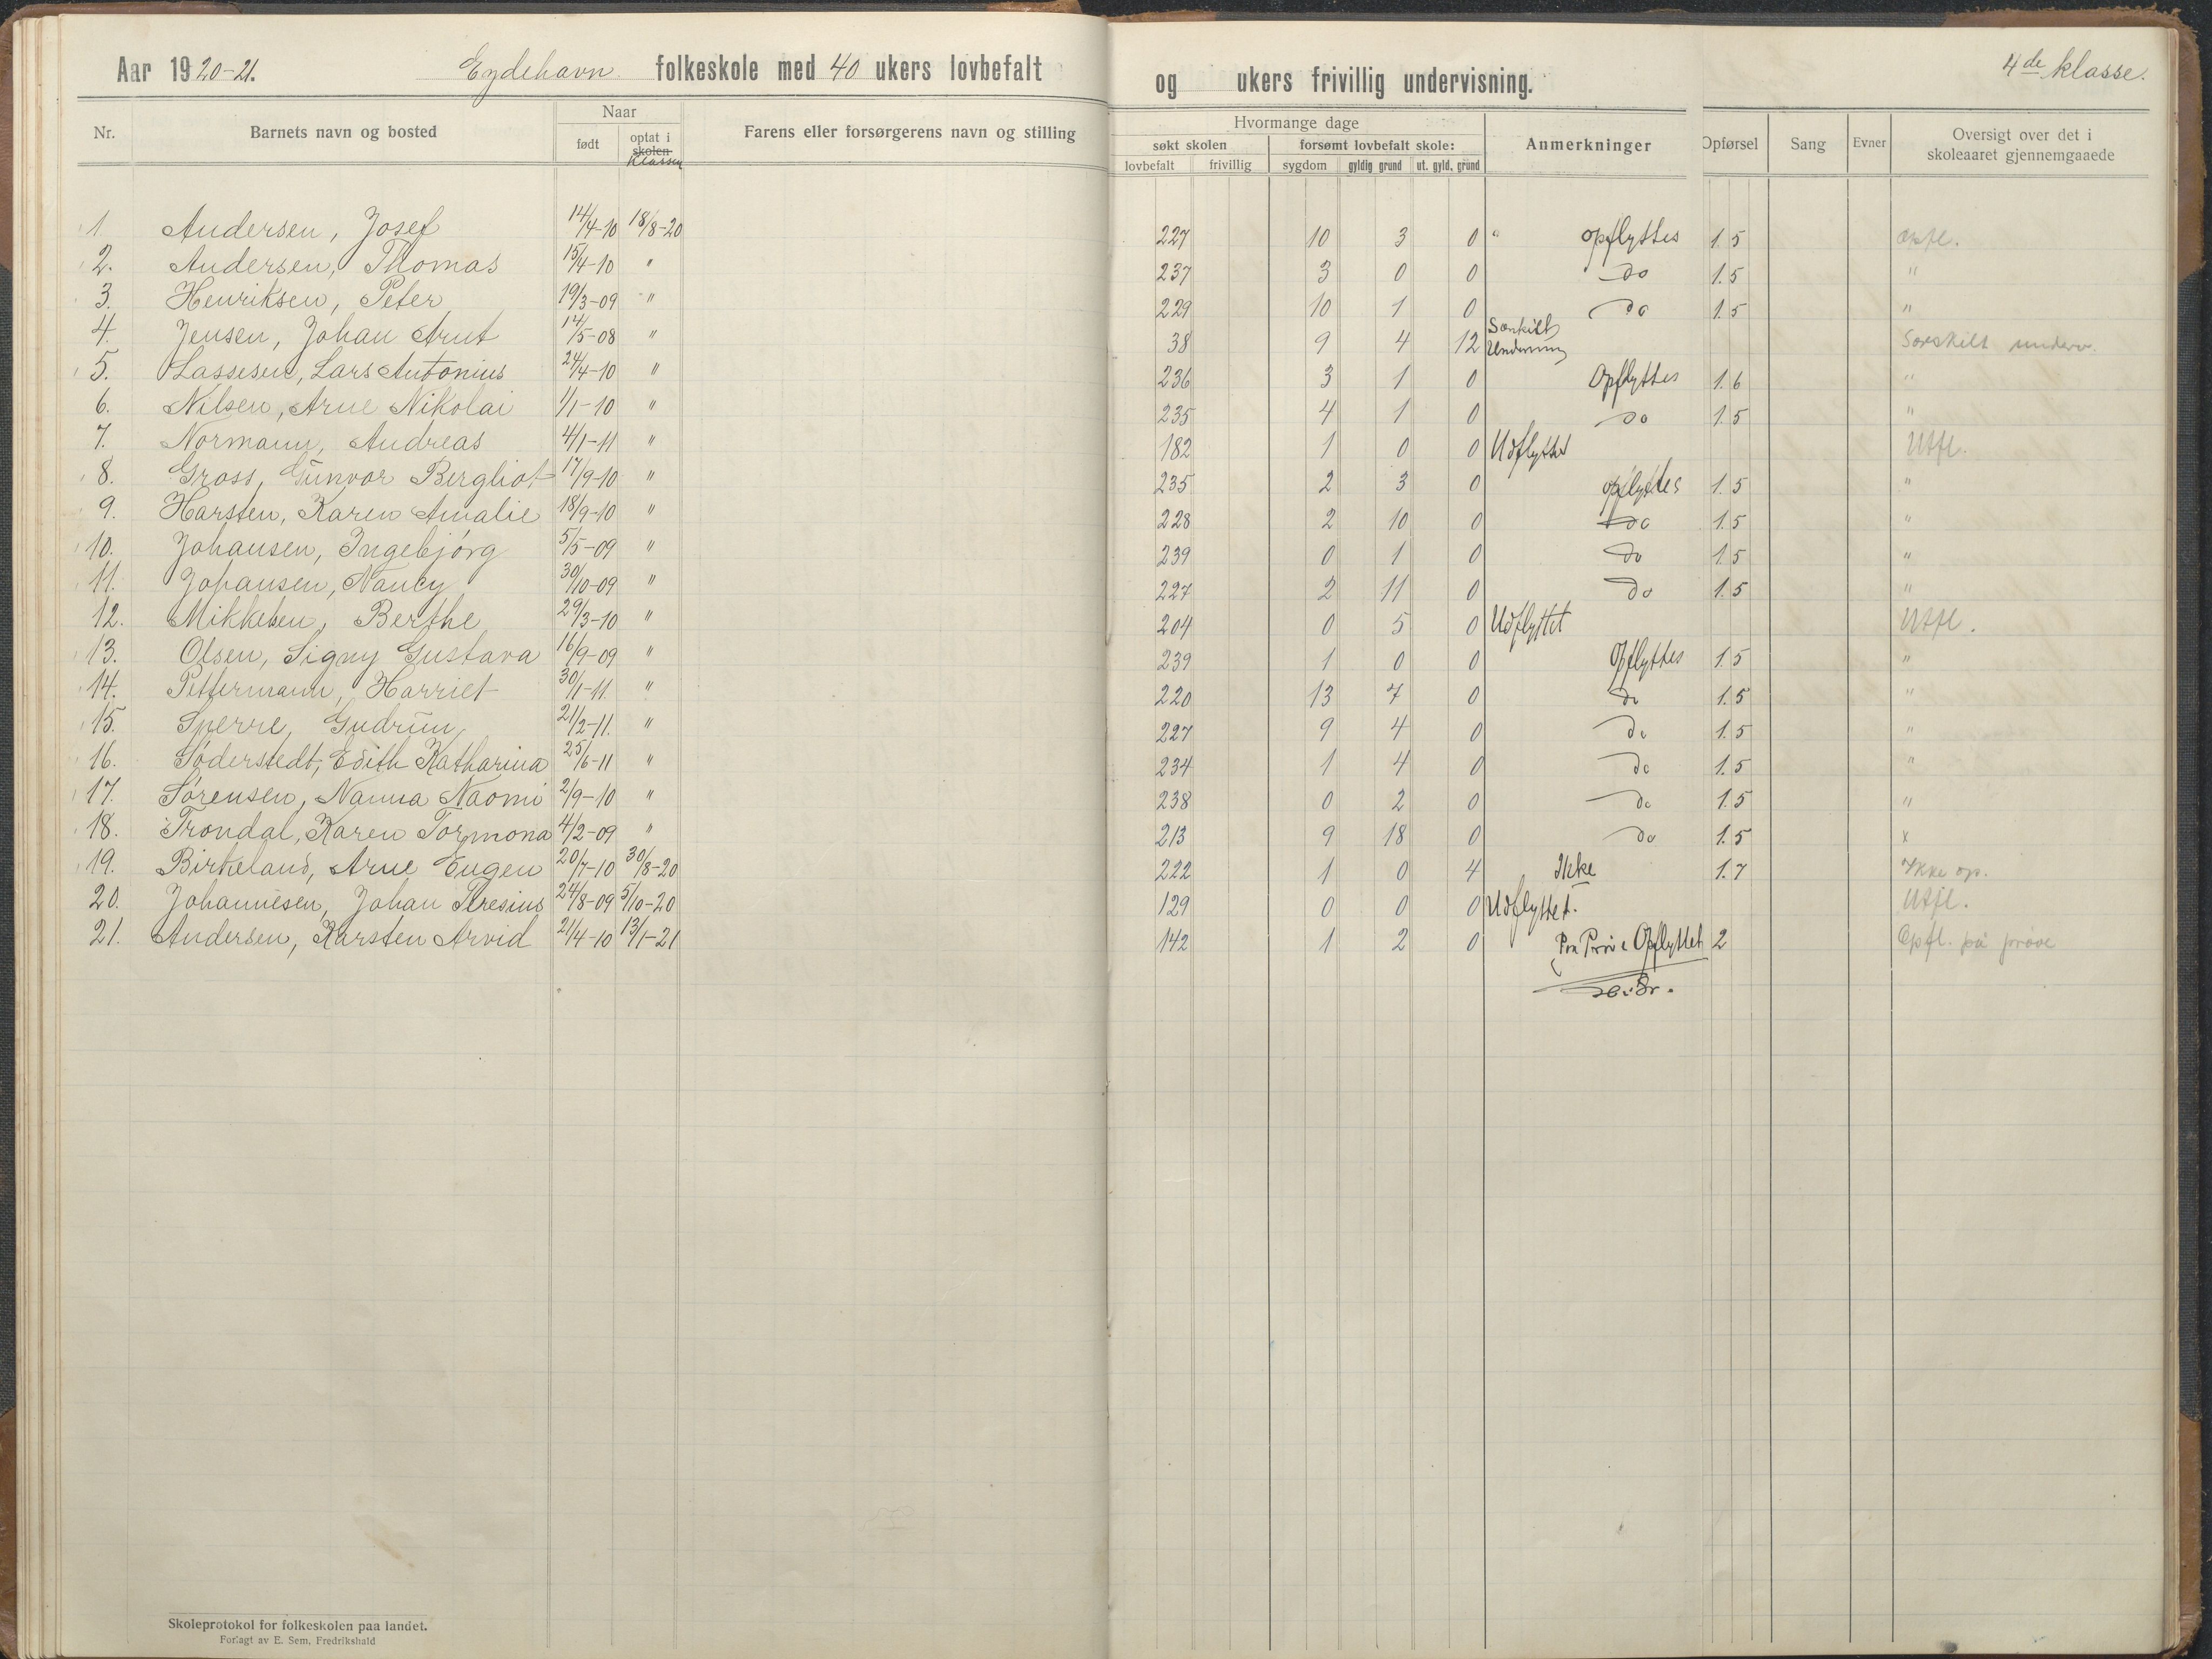 Aar 1920-21. Eydehavn folkeskole med 40 ukers lovbefalt og ukers frivillig undervisning. 4de klasse.
Nr. Barnets navn og bosted Naar født optat i skolen Klassen Farens eller forsørgerens navn og stilling Hvormange dage søkt skolen lovbefalt frivillig forsømt lovbefalt skole: sygdom gyldig grund ut. gyld. grund Anmerkninger Opførsel Sang Evner Oversigt over det i skoleaaret gjennemgaaede
1 Andersen, Josef 14/4-10 18/8-20 227 10 3 0 " Opflyttes 1.5 Opfl.
2. Andersen, Thomas 15/4-10 " 237 3 0 0 do 1.5 "
3. Henriksen, Peter 19/3-09 " 229 10 1 0 do 1.5 "
4. Jensen, Johan Arnt 14/5-08 " 38 9 4 12 Særskilt Undervisning Særskilt underv.
5. Lassesen, Lars Antonius 24/4-10 " 236 3 1 0 Opflyttes 1.6 "
6. Nilsen, Arne Nikolai 1/1-10 " 235 4 1 0 do 1.5 "
7. Normann, Andreas 4/1-11 " 182 1 0 0 Udflyttet Utfl.
8. Gross, Gunvor Bergliot 17/9-10 " 235 2 3 0 opflyttes 1.5 "
9. Harsten, Karen Amalie 18/9-10 " 228 2 10 0 do 1.5 "
10. Johansen, Ingebjörg 5/5-09 " 239 0 1 0 do 1.5 "
11. Johansen, Nancy 30/10-09 " 227 2 11 0 do 1.5 "
12. Mikkelsen, Berthe 29/3-10 " 204 0 5 0 Udflyttet Utfl.
13. Olsen, Signy Gustava 16/9-09 " 239 1 0 0 Opflyttes 1.5 "
14. Pettermann, Harriet 30/1-11 " 220 13 7 0 do 1.5 "
15. Sperre, Gudrun 21/2-11. " 227 9 4 0 do 1.5 "
16. Söderstedt, Edith Katharina 25/6-11 " 234 1 4 0 do 1.5 "
17. Sörensen, Nanna Naomi 2/9-10 " 238 0 2 0 do 1.5 "
18. Trondal, Karen Tormona 4/2-09 " 213 9 18 0 do 1.5 x
19. Birkeland, Arne Eugen 20/7-10 30/8-20 222 1 0 4 Ikke 1.7 Ikke op.
20. Johannesen, Johan Theresius 24/8-09 5/10-20 129 0 0 0 Udflyttet. Utfl.
21. Andersen, Karsten Arvid 21/4-10 13/1-21 142 1 2 0 Paa Prøve Opflyttet 2 Opfl. på prøve
Skoleprotokol for folkeskolen paa landet.
Forlagt av E. Sem, Fredrikshald